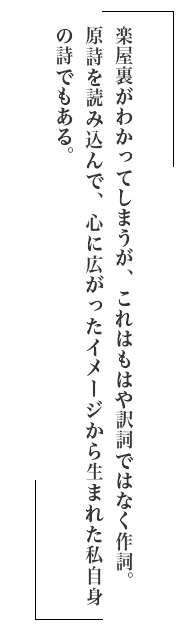 楽屋裏がわかってしまうが、これはもはや訳詞ではなく作詞。
原詩を読み込んで、心に広がったイメージから生まれた私自身
の詩でもある。